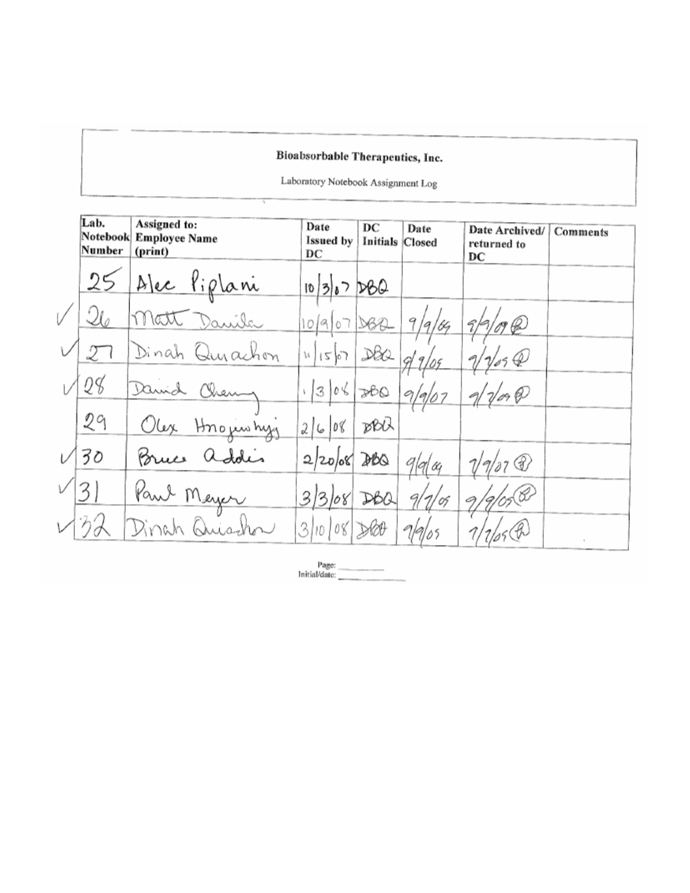 Bioabsorbable Therapeutics, Inc.
Laboratory Notebook Assignment Log
Lab. Notebook Number Assigned to: Employee Name (print) Date Issued by DC DC Initials Date Closed Date Archived/ returned to DC Comments
25 Alec Piplani 10/3/07 DBQ
26 Matt Davila 10/9/07 DBQ 9/9/09
27 Dinah Quiachon 11/15/07 DBQ
28 David 1/3/08 DBQ 9/9/07
29 Olex 2/6/08 DBQ
30 Bruce Addis 2/20/08 DBQ 9/9/09
31 Paul Meyer 3/3/08 DBQ
32 Dinah Quiachon 3/10/08 DBQ
Page:
Initial/date: